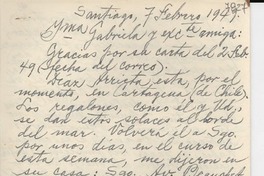 Santiago, 7 Febrero 1949.
Yma Gabriela y exc te amiga:
Gracias por su carta del 2 Feb.
49 (fecha del correo).
Isaz Arrigta esta, por el
momento, en Cartagena (de Chile).
Los regalones, como él y Vd,
se dan estos solaces al borde
del mar. Volverá el a Sgo.
por unos días, en el curso de
esta semana, me dijeron en
su casa: Sgo,